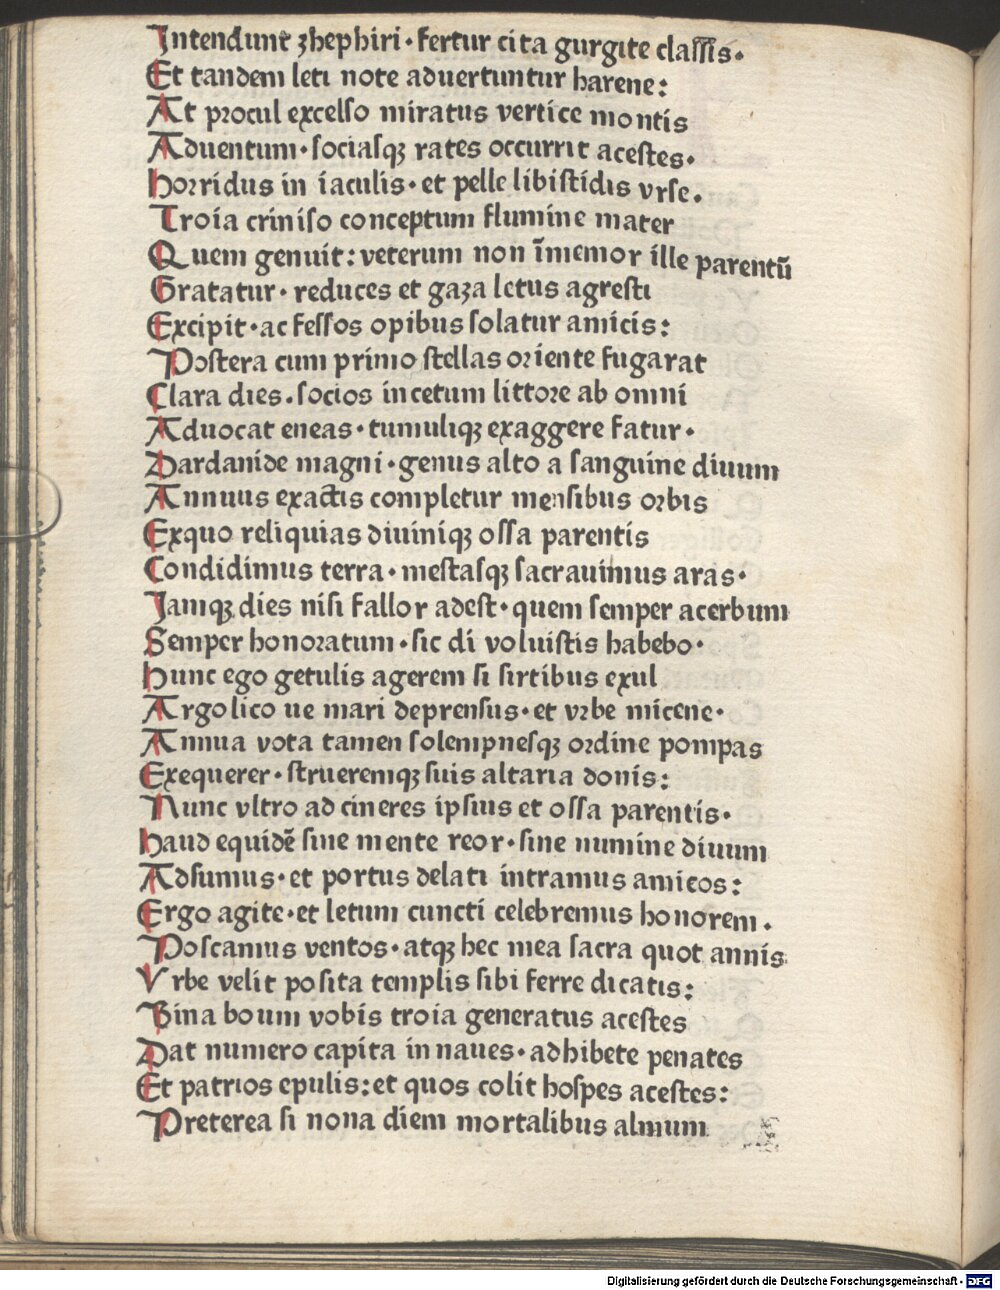 Intendunt zhephiri · fertur cita gurgite classis ·
Et tandem leti note aduertuntur harene :
At procul excelso miratus vertice montis
Aduentum · sociasqꝫ rates occurrit acestes ·
Horridus in iaculis · et pelle libistidis vrse .
Troia criniso conceptum flumine mater
Quem genuit : veterum non īmemor ille parentū
Gratatur · reduces et gaza letus agresti
Excipit · ac fessos opibus solatur amicis :
Postera cum primo stellas oriente fugarat
Clara dies . socios in cetum littore ab omni
Aduocat eneas · tumuliqꝫ exaggere fatur ·
Dardanide magni · genus alto a sanguine diuum
Annuus exactis completur mensibus orbis
Exquo reliquias diuiniqꝫ ossa parentis
Condidimus terra · mestasqꝫ sacrauimus aras ·
Jamqꝫ dies nisi fallor adest · quem semper acerbum
Semper honoratum · sic di voluistis habebo ·
Hunc ego getulis agerem si sirtibus exul
Argolico ue mari deprensus · et vrbe micene ·
Annua vota tamen solempnesqꝫ ordine pompas
Exequerer · strueremqꝫ suis altaria donis :
Nunc vltro ad cineres ipsius et ossa parentis ·
Haud equidē sine mente reor · sine numine diuum
Adsumus · et portus delati intramus amicos :
Ergo agite · et letum cuncti celebremus honorem .
Poscamus ventos · atqꝫ hec mea sacra quot annis
Vrbe velit posita templis sibi ferre dicatis :
Bina boum vobis troia generatus acestes
Dat numero capita in naues · adhibete penates
Et patrios epulis : et quos colit hospes acestes :
Preterea si nona diem mortalibus almum
Digitalisierung gefördert durch die Deutsche Forschungsgemeinschaft · DFG